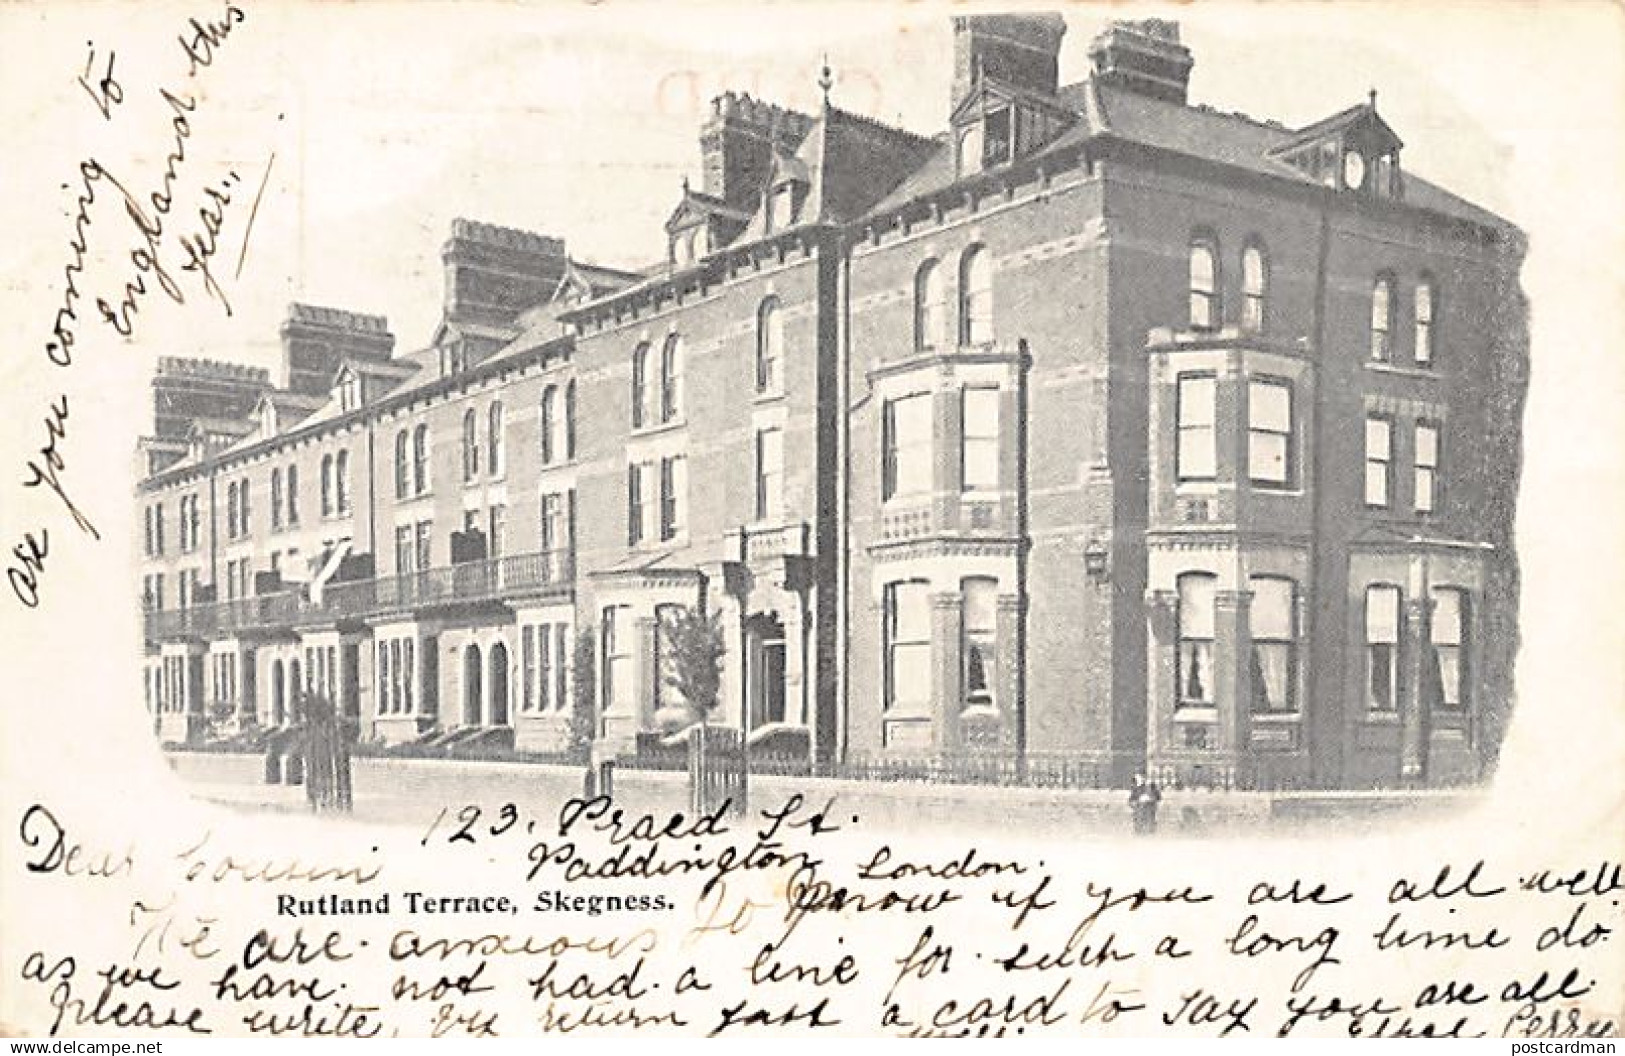 are you coming to
England this
Year.,
123. Praed St.
Paddington London.
Dear Cousin
Rutland Terrace, Skegness.
We are anxious to know if you are all well
as we have not had a line for such a long time do
Please write, by return just a card to say you are all
well. Ethel Perry
delcampe.net
postcardman